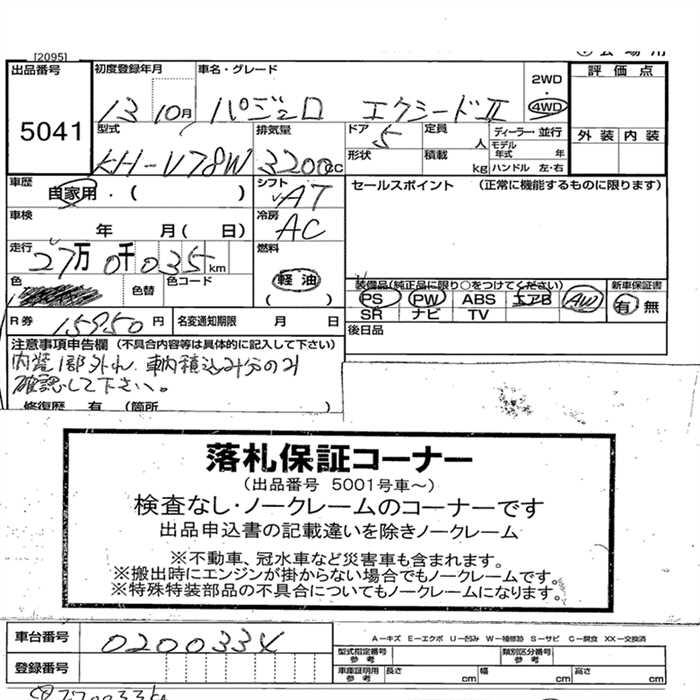 [2095]
出品番号
5041
初度登録年月
13 10月
車名・グレード
パジェロ エクシードⅡ
2WD
・
4WD
評価点
外装 内装
型式
KH-V78W
排気量
3200cc
ドア
5
定員
人
ディーラー・並行
モデル年式 年
形状
積載
kg
ハンドル 左・右
車歴
自家用・( )
シフト
AT
セールスポイント (正常に機能するものに限ります)
車検
年 月( 日)
冷房
AC
走行
27万0千035km
燃料
軽油
( )
色
色替
色コード
装備品(純正品に限り○をつけてください)
新車保証書
PS PW ABS エアB AW
有 無
SR ナビ TV
R券 15950円
名変通知期限 月 日
後日品
注意事項申告欄 (不具合内容等は具体的に記入して下さい)
内装1部外れ、車内積込み分のみ
確認して下さい。
修復歴 有 (箇所 )
落札保証コーナー
(出品番号 5001号車~)
検査なし・ノークレームのコーナーです
出品申込書の記載違いを除きノークレーム
※不動車、冠水車など災害車も含まれます。
※搬出時にエンジンが掛からない場合でもノークレームです。
※特殊特装部品の不具合についてもノークレームになります。
車台番号
登録番号
A-キズ E-エクボ U-凹み W-補修跡 S-サビ C-腐食 XX-交換済
型式指定番号 参考
類別区分番号 参考
車庫証明用 参考
長さ cm
幅 cm
高さ cm